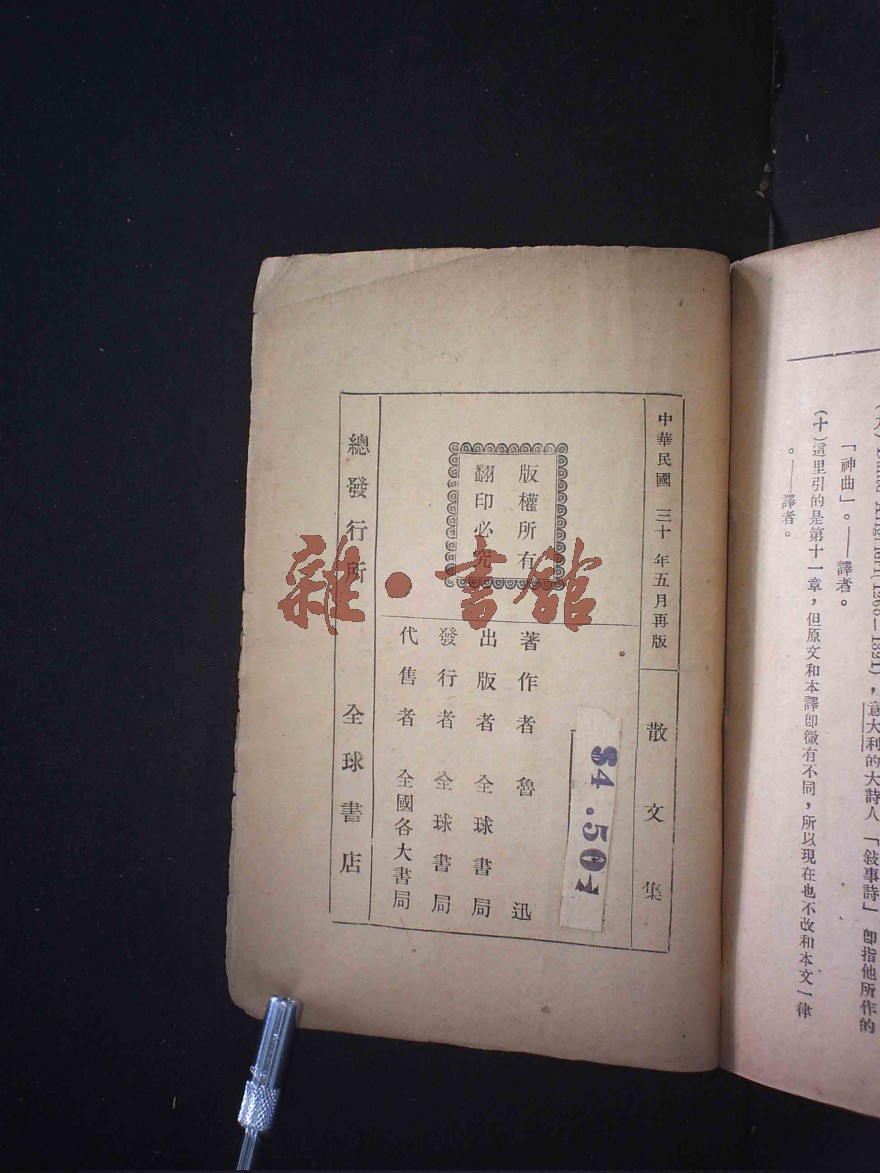 (九) Dante Alighieri(1265—1321)，意大利的大詩人「敍事詩」卽指他所作的
「神曲」。——譯者。
(十)這里引的是第十一章，但原文和本譯卽微有不同，所以現在也不改和本文一律
。——譯者。
中華民國 三十 年五月再版
散文集
版權所有
翻印必究
$4.50
著作者 魯迅
出版者 全球書局
發行者 全球書局
代售者 全國各大書局
總發行所 全球書店
雜·書館